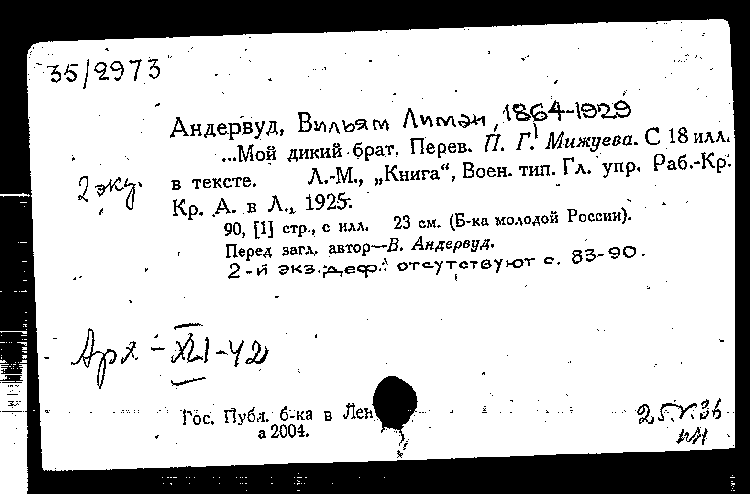 35/2973
Андервуд, Вильям Лиман, 1864-1929
...Мой дикий брат. Перев. П. Г. Мижуева. С 18 илл.
2 экз. в тексте. Л.-М., „Книга“, Воен. тип. Гл. упр. Раб.-Кр.
Кр. А. в Л., 1925.
90, [1] стр., с илл. 23 см. (Б-ка молодой России).
Перед загл. автор—В. Андервуд.
2-й экз. деф.: отсутствуют с. 83-90.
Арх - XLI-42
Гос. Публ. б-ка в Лен
а 2004.
25.V.36